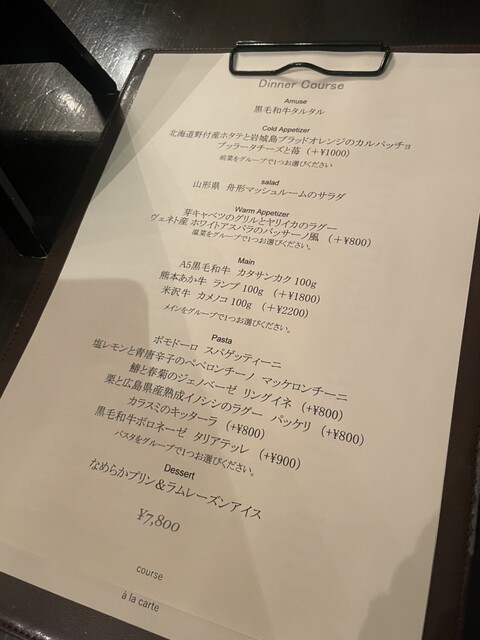 Dinner Course
Amuse
黒毛和牛タルタル
Cold Appetizer
北海道野付産ホタテと岩城島ブラッドオレンジのカルパッチョ
ブッラータチーズと苺 (+¥1000)
前菜をグループで1つお選びください
salad
山形県 舟形マッシュルームのサラダ
Warm Appetizer
芽キャベツのグリルとヤリイカのラグー
ヴェネト産 ホワイトアスパラのバッサーノ風 (+¥800)
温菜をグループで1つお選びください。
Main
A5黒毛和牛 カタサンカク 100g
熊本あか牛 ランプ 100g (+¥1800)
米沢牛 カメノコ 100g (+¥2200)
メインをグループで1つお選びください。
Pasta
ポモドーロ スパゲッティーニ
塩レモンと青唐辛子のペペロンチーノ マッケロンチーニ
鰆と春菊のジェノベーゼ リングイネ (+¥800)
栗と広島県産熟成イノシシのラグー パッケリ (+¥800)
カラスミのキッターラ (+¥800)
黒毛和牛ボロネーゼ タリアテッレ (+¥900)
パスタをグループで1つお選びください。
Dessert
なめらかプリン&ラムレーズンアイス
¥7,800
course
à la carte